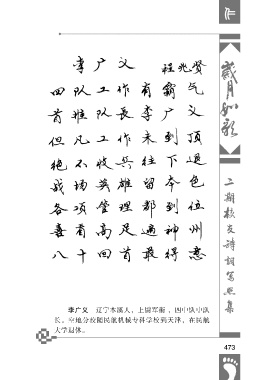 李广义 程兆贤
四队工作有霸气
首推队长李广义
但凡工作未到顶
绝不收兵往下退
战场英雄留本色
各项管理都到位
喜看高足遍神州
八十回首最得意
李广义 辽宁本溪人，上尉军衔，四中队中队
长。空地分校随民航机械专科学校到天津，在民航
大学退休。
岁月如歌
二期校友诗词写照集
473